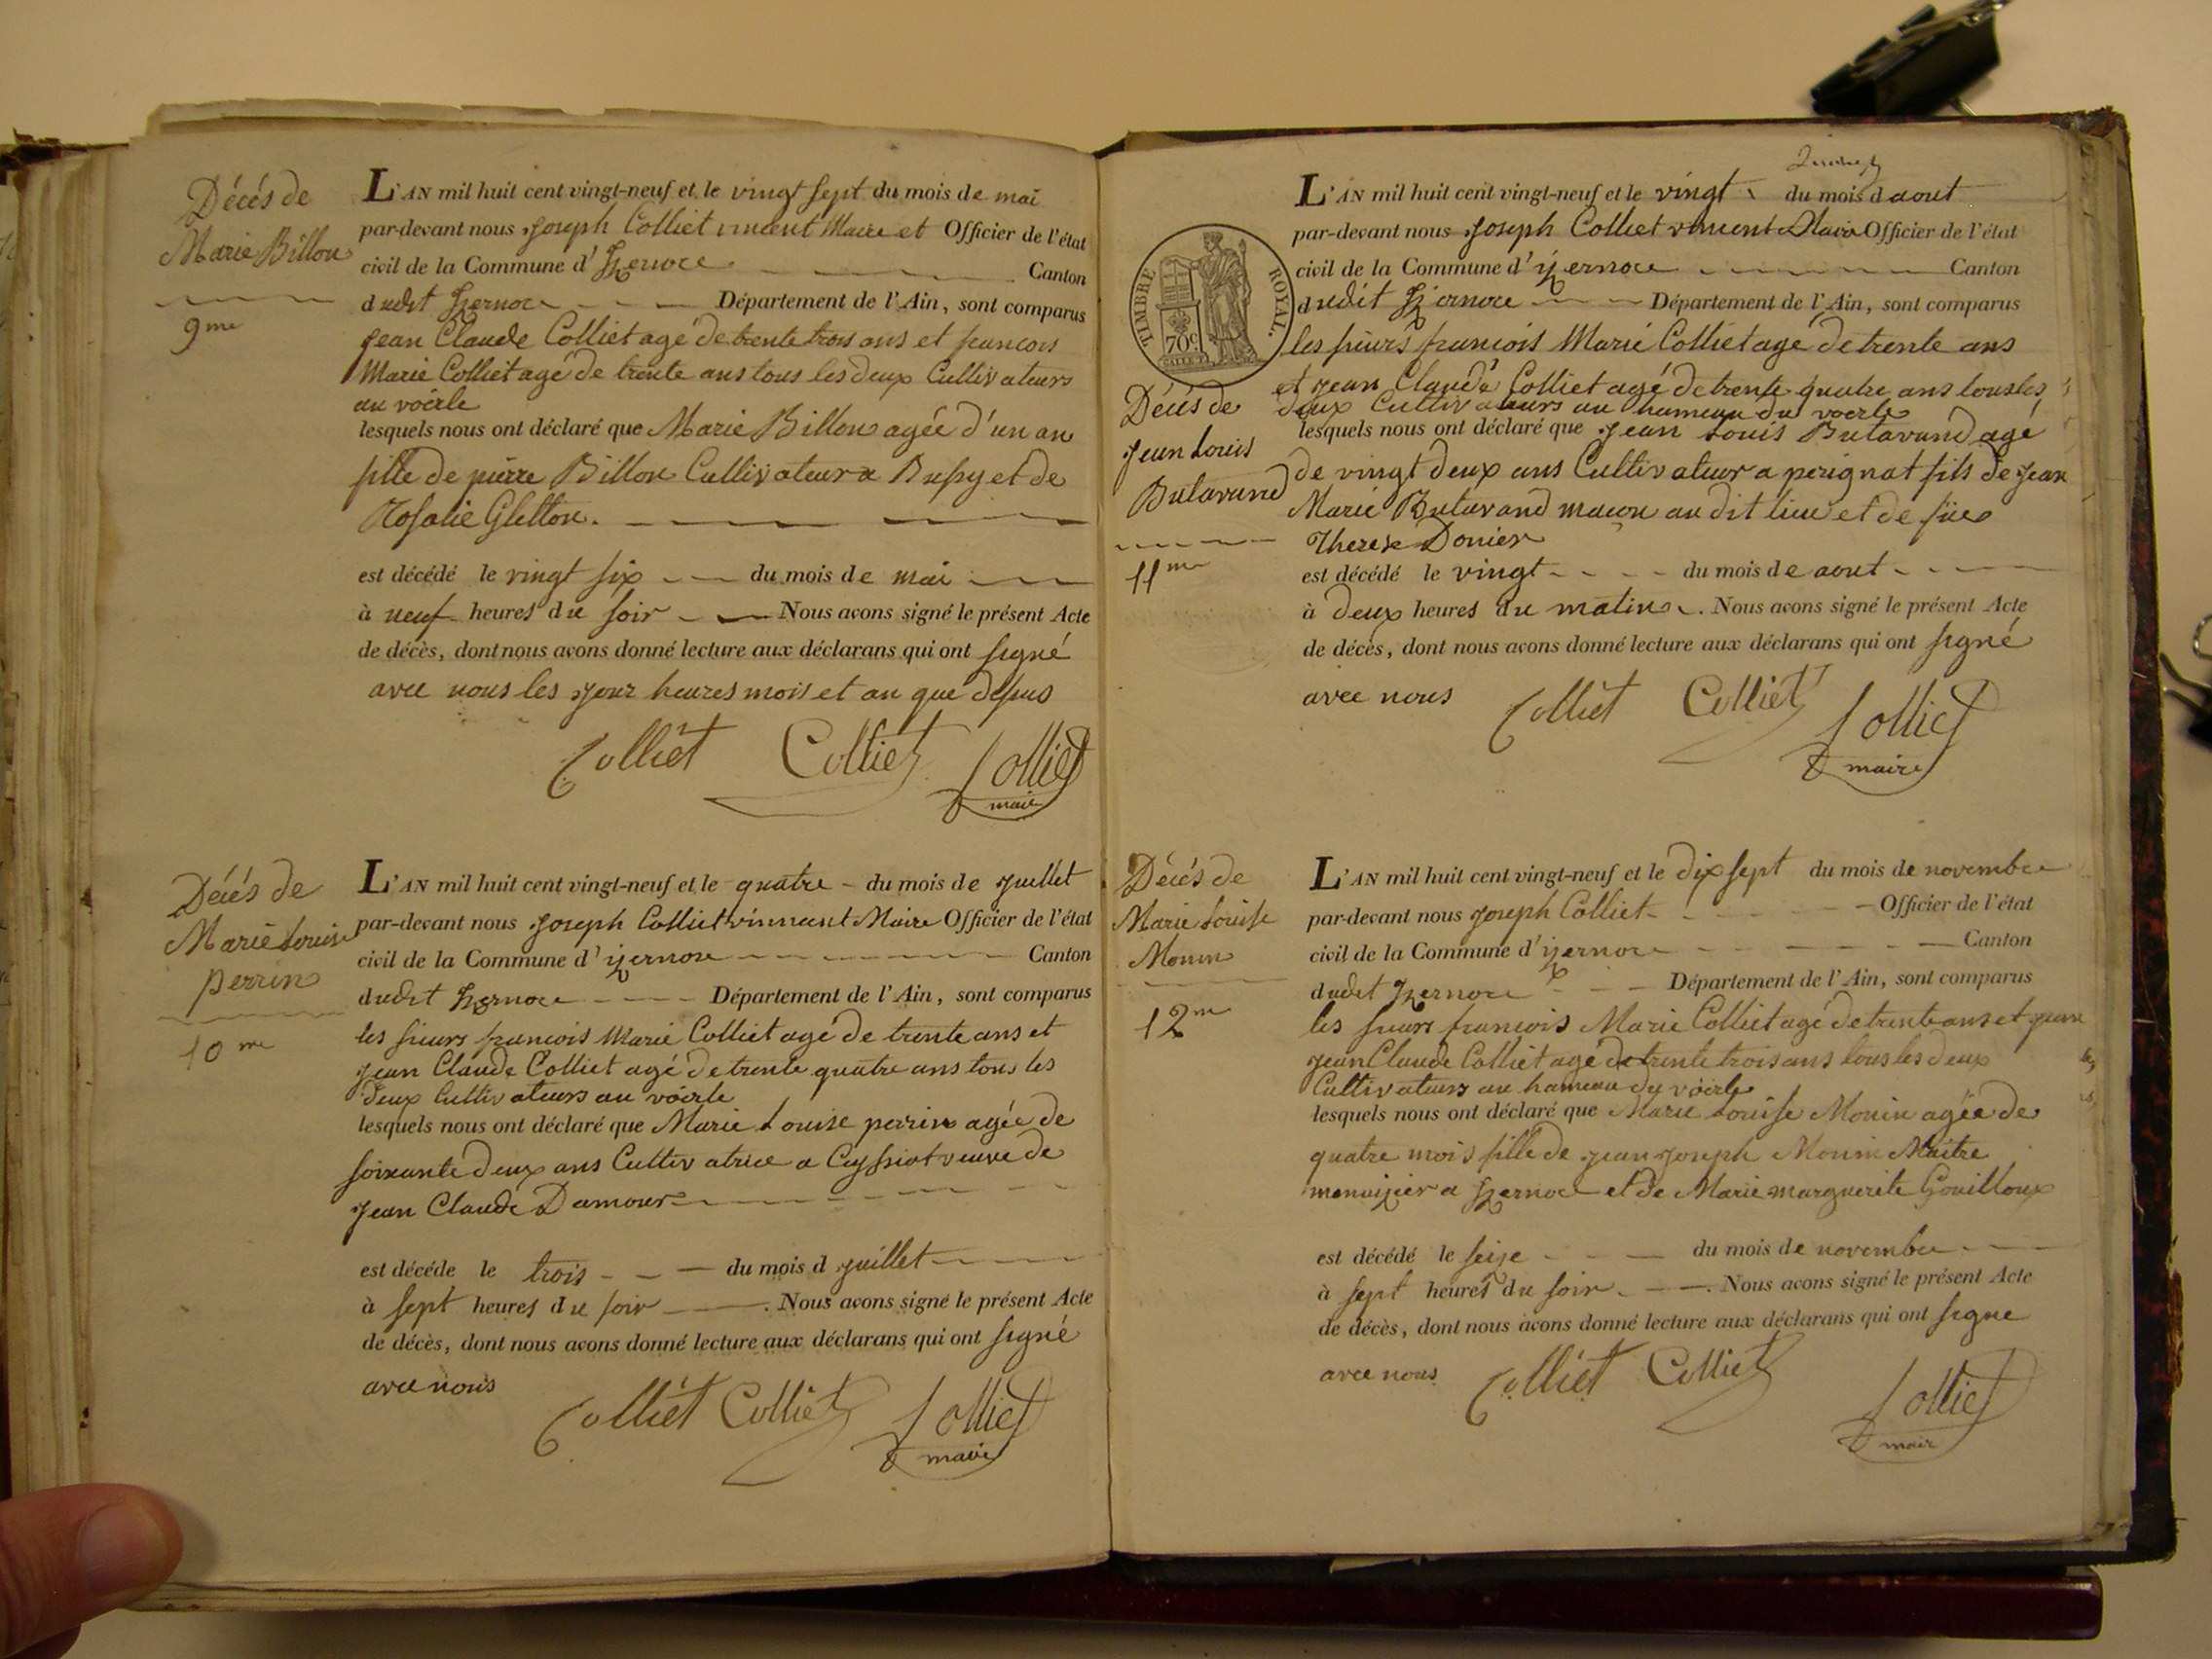 Décés de
Marie Billon
9me
L'AN mil huit cent vingt-neuf et le vingt sept du mois de mai
par-devant nous Joseph Colliet vincent Maire et Officier de l'état
civil de la Commune d'Izernore Canton
dudit Izernore Département de l'Ain, sont comparus
Jean Claude Colliet agé de trente trois ans et francois
Marie Colliet agé de trente ans tous les deux Cultivateurs
au voerle
lesquels nous ont déclaré que Marie Billon agée d'un an
fille de pierre Billon Cultivateur a Bussy et de
Rosalie Gletton.
est décédé le vingt six du mois de mai
à neuf heures du soir Nous avons signé le présent Acte
de décès, dont nous avons donné lecture aux déclarans qui ont signé
avec nous les jour heures mois et an que dessus
Colliet Colliet Colliet
maire
Décés de
Marie Louise
perrin
10me
L'AN mil huit cent vingt-neuf et le quatre du mois de juillet
par-devant nous Joseph Colliet vinncent Maire Officier de l'état
civil de la Commune d'izernore Canton
dudit Izernore Département de l'Ain, sont comparus
les sieurs francois Marie Colliet agé de trente ans et
Jean Claude Colliet agé de trente quatre ans tous les
deux Cultivateurs au voërle
lesquels nous ont déclaré que Marie Louise perrin agée de
soixante deux ans Cultivatrice a Ceyssiat veuve de
Jean Claude Damour
est décéde le trois du mois d juillet
à sept heures du soir. Nous avons signé le présent Acte
de décès, dont nous avons donné lecture aux déclarans qui ont signé
avec nous
Colliet Colliet Colliet
maire
TIMBRE ROYAL.
70c
L'AN mil huit cent vingt-neuf et le vingt du mois d aout
par-devant nous Joseph Colliet vincent Maire Officier de l'état
civil de la Commune d'izernore Canton
dudit Izernore Département de l'Ain, sont comparus
les sieurs francois Marie Colliet agé de trente ans
et Jean Claude Colliet agé de trente quatre ans tous les
deux Cultivateurs au hameau du voerle
Décés de
Jean Louis
Butavand
11me
lesquels nous ont déclaré que Jean Louis Butavand agé
de vingt deux ans Cultivateur a perignat fils de Jean
Marie Butavand macon au dit lieu et de
Therese Donier
est décédé le vingt du mois de aout
à deux heures du matin. Nous avons signé le présent Acte
de décès, dont nous avons donné lecture aux déclarans qui ont signé
avec nous
Colliet Colliet Colliet
maire
Décés de
Marie Louise
Monin
12me
L'AN mil huit cent vingt-neuf et le dix sept du mois de novembre
par-devant nous Joseph Colliet Officier de l'état
civil de la Commune d'izernore Canton
dudit Izernore Département de l'Ain, sont comparus
les sieurs francois Marie Colliet agé de trente ans et jean
jean Claude Colliet agé de trente trois ans tous les deux
Cultivateurs au hameau du voërle
lesquels nous ont déclaré que Marie Louise Monin agée de
quatre mois fille de jean joseph Monin Maitre
menuizier a Izernore et de Marie marguerite Gouilloux
est décédé le seize du mois de novembre
à sept heures du soir. Nous avons signé le présent Acte
de décès, dont nous avons donné lecture aux déclarans qui ont signe
avec nous
Colliet Colliet Colliet
maire